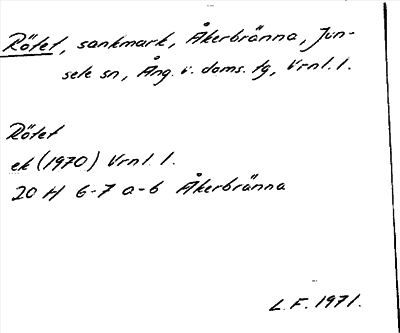 Rötet, sankmark, Åkerbränna, Jun-
sele sn, Ång. v. doms. tg, Vrnl. l.
Rötet
ek (1970) Vrnl. l.
20 H 6-7 a-b Åkerbränna
L. F. 1971.